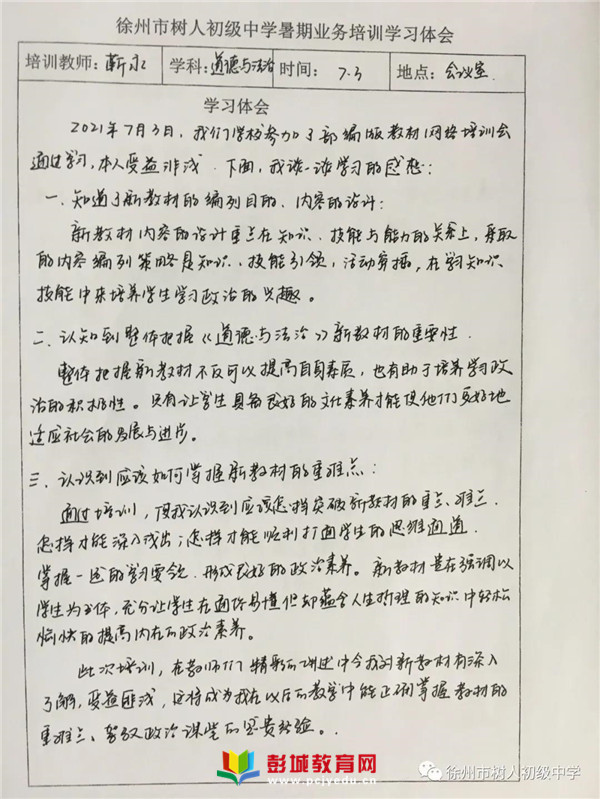 徐州市树人初级中学暑期业务培训学习体会
培训教师：靳永 学科：道德与法治 时间： 7.3 地点：会议室
学习体会
2021年7月3日，我们学校参加了部编版教材网络培训会
通过学习，本人受益非浅．下面，我谈一谈学习的感想：
一、知道了新教材的编列目的、内容的设计：
新教材内容的设计重点在知识、技能与能力的关系上，采取
的内容编列策略是知识、技能引领，活动穿插，在学习知识
技能中来培养学生学习政治的兴趣。
二、认知到整体把握《道德与法治》新教材的重要性．
整体把握新教材不仅可以提高自身素质，也有助于培养学习政
治的积极性。只有让学生具备良好的文化素养才能使他们更好地
适应社会的发展与进步。
三、认识到应该如何掌握新教材的重难点：
通过培训，使我认识到应该怎样突破新教材的重点、难点．
怎样才能深入浅出；怎样才能顺利打通学生的思维通道．
掌握一定的学习要领．形成良好的政治素养。新教材旨在强调以
学生为主体，充分让学生在通俗易懂但却蕴含人生哲理的知识中轻松
愉快的提高内在的政治素养。
此次培训，在教师们精彩的讲述中令我对新教材有深入
了解，受益匪浅，这将成为我在以后的教学中能正确掌握教材的
重难点、驾驭政治课堂的宝贵经验。．
彭城教育网
www.pcjyedu.cn
徐州市树人初级中学